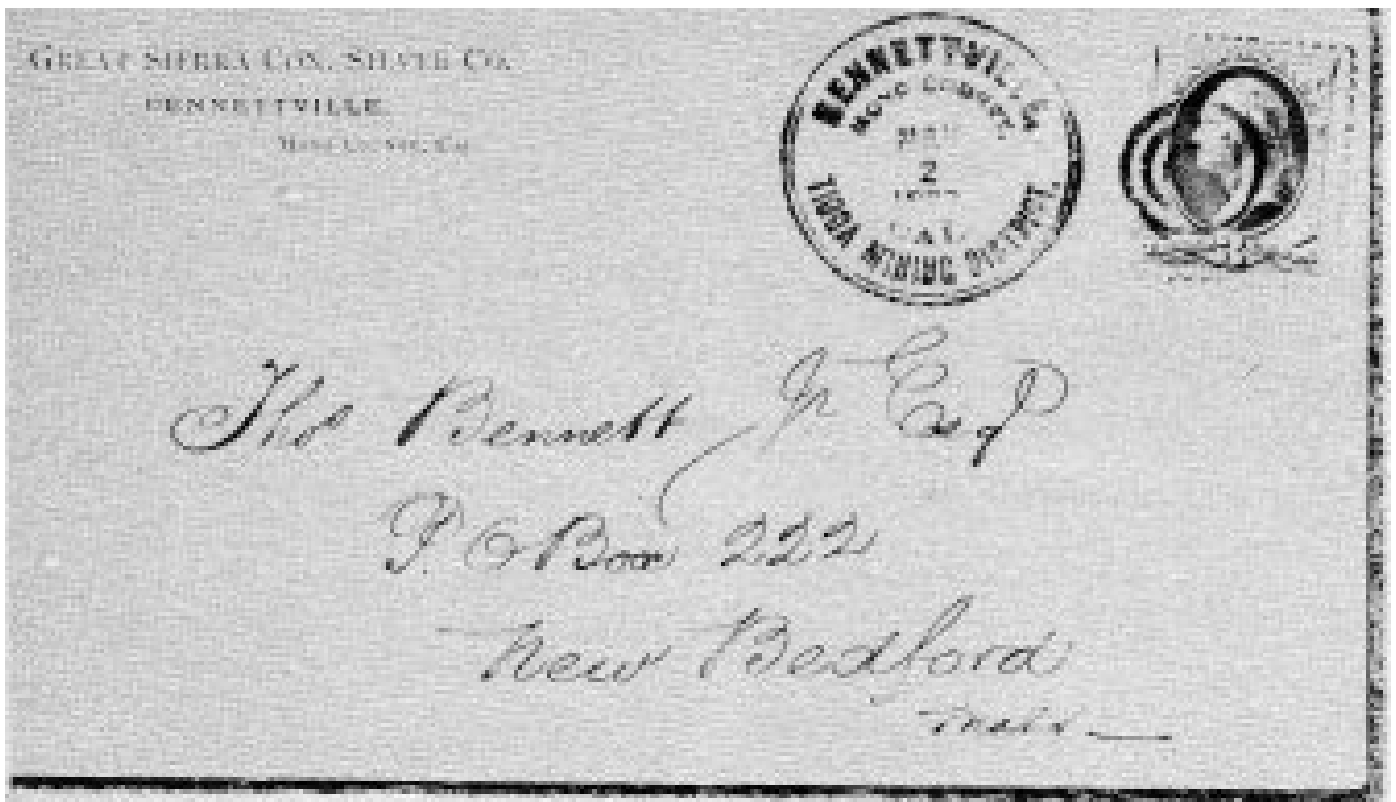 GREAT SIERRA CON. SILVER CO.
BENNETTVILLE,
MONO COUNTY, CAL
BENNETTVILLE
MONO COUNTY,
2
CAL.
TIOGA MINING DISTRICT.
Thos Bennett Jr Esq
P. O Box 222
New Bedford
Mass